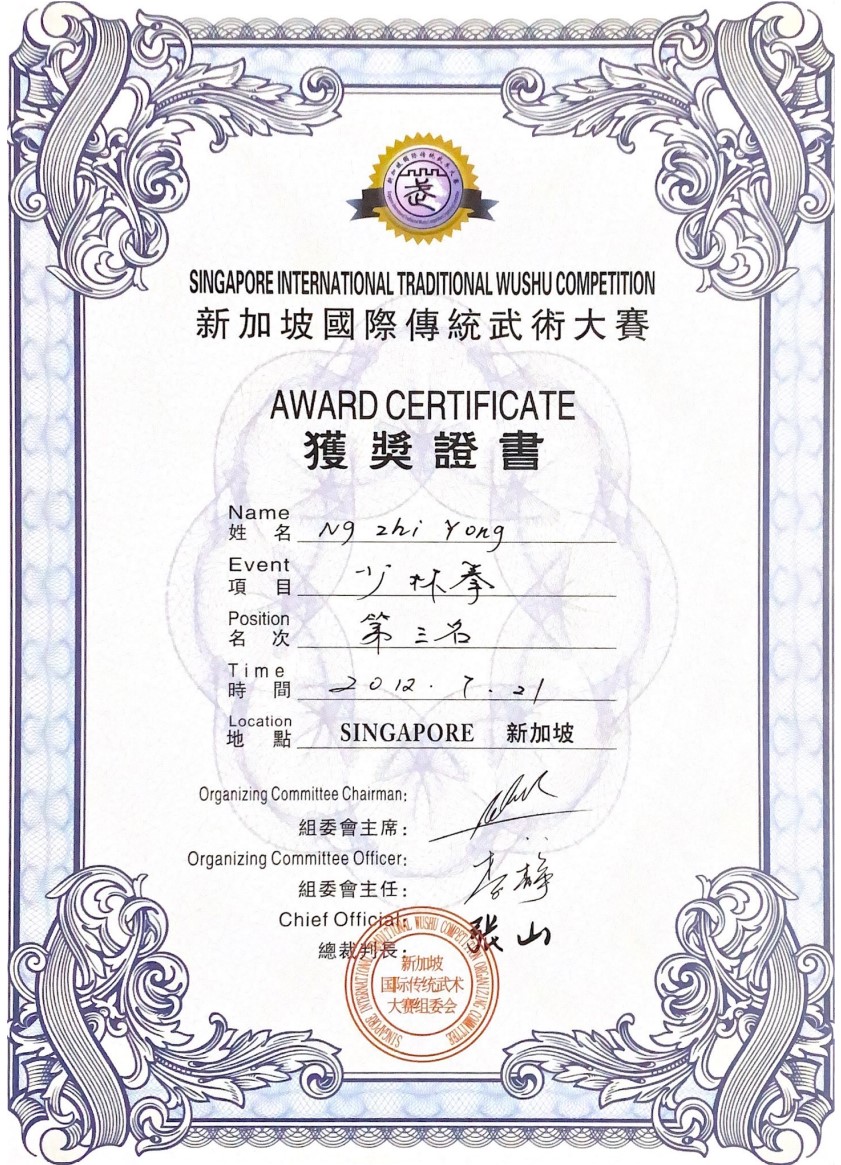 新加坡國際傳統武術大賽
SINGAPORE INTERNATIONAL TRADITIONAL WUSHU COMPETITION
新加坡國際傳統武術大賽
AWARD CERTIFICATE
獲獎證書
Name
姓名 Ng Zhi Yong
Event
項目 少林拳
Position
名次 第三名
Time
時間 2012.7.21
Location
地點 SINGAPORE 新加坡
Organizing Committee Chairman:
組委會主席:
Organizing Committee Officer:
組委會主任: 李靜
Chief Official:
總裁判長: 張山
SINGAPORE INTERNATIONAL TRADITIONAL WUSHU COMPETITION ORGANIZING COMMITTEE
新加坡
国际传统武术
大赛组委会